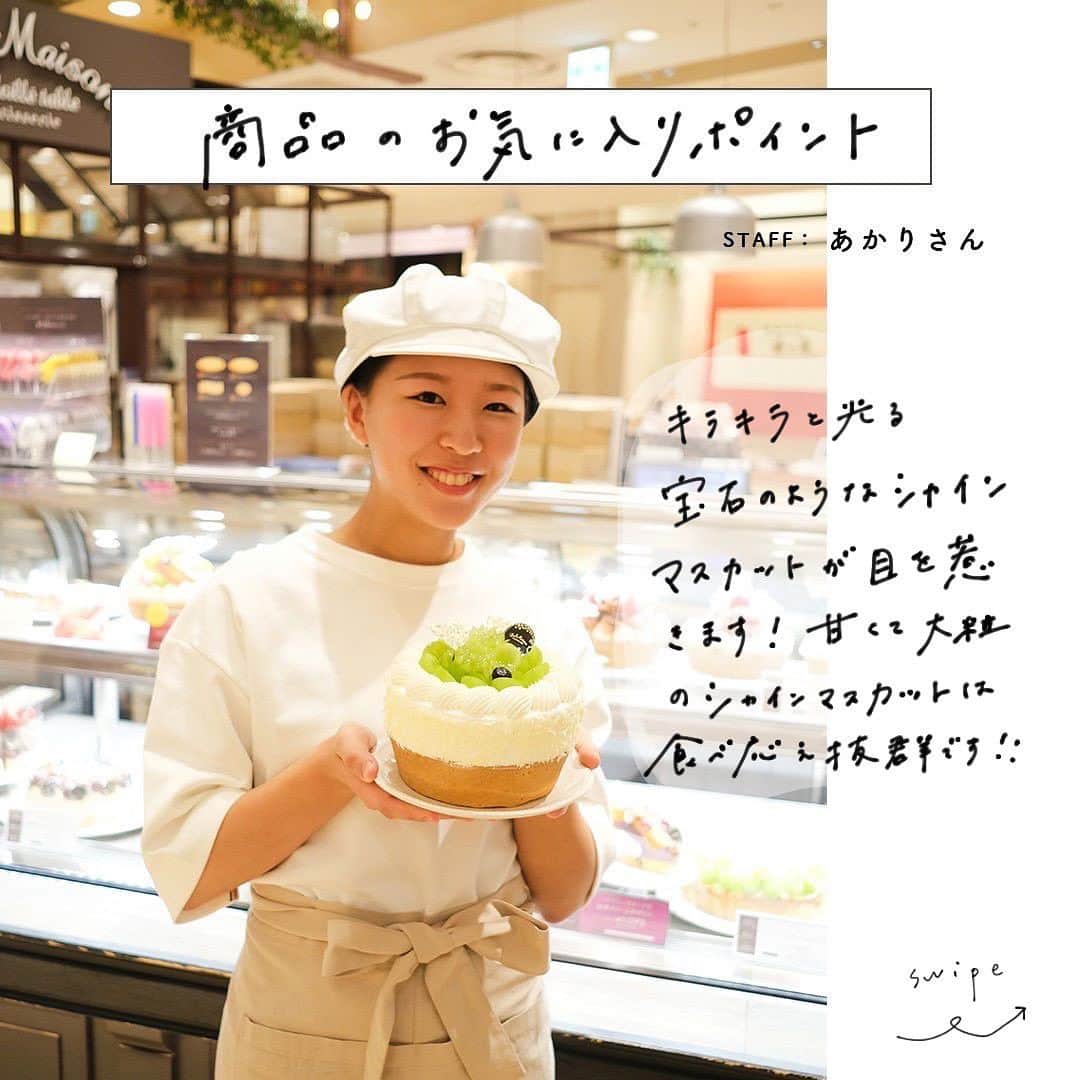 Maison
商品のお気に入りポイント
STAFF： あかりさん
キラキラと光る
宝石のようなシャイン
マスカットが目を惹
きます！甘くて大粒
のシャインマスカットは
食べ応え抜群です!!
swipe